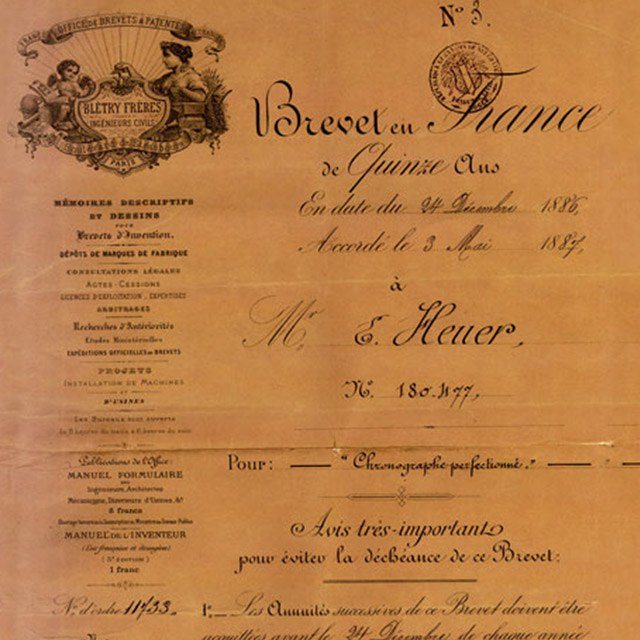 N° 3.
OFFICE DE BREVETS & PATENTES
BLÉTRY FRÈRES
INGÉNIEURS CIVILS
PARIS
Brevet en France
de Quinze Ans
En date du 24 Décembre 1886,
Accordé le 3 Mai 1887,
à
Mr E. Heuer,
N°. 180.477,
Pour : — "Chronographe perfectionné." —
Avis très-important
pour éviter la déchéance de ce Brevet:
1° — Les Annuités successives de ce Brevet doivent être
acquittées avant le 24 Décembre de chaque année
MÉMOIRES DESCRIPTIFS
ET DESSINS
POUR
Brevets d'Invention.
DÉPÔTS DE MARQUES DE FABRIQUE
CONSULTATIONS LÉGALES
ACTES-CESSIONS
LICENCES D'EXPLOITATION, EXPERTISES
ARBITRAGES
Recherches d'Antériorités
Etudes Ministérielles
EXPÉDITIONS OFFICIELLES DE BREVETS
PROJETS
INSTALLATION DE MACHINES
ET
D'USINES
Les Bureaux sont ouverts
Publications de l'Office:
MANUEL FORMULAIRE
DES
Ingénieurs, Architectes
Mécaniciens, Directeurs d'Usines, &c
8 francs
MANUEL DE L'INVENTEUR
(Lois française et étrangères)
(5e ÉDITION)
1 franc
N° d'ordre 11733.